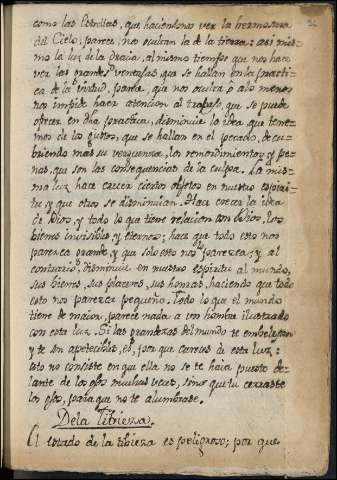 como las Estrellas, que haciendonos ver la hermosura
del Cielo, parece, nos ocultan la de la tierra: asi mis-
mo la luz de la Gracia, al mismo tiempo que nos hace
ver las grandes ventajas, que se hallan en la practi-
ca de la virtud, parece, que nos oculta, o alo menos
nos impide hacer atencion al trabajo, que se puede
ofrecer en dha practica, disminuie la idea que tene-
mos de los gustos, que se hallan en el pecado, descu-
briendo mas su verguenza, los remordimientos, y pe-
nas, que son las consequencias de la culpa. La mis-
ma luz hace crecer ciertos objetos en nuestro espiri-
tu, y que otros se disminuian. Hace crecer la idea
de Dios, y todo lo que tiene relacion con Dios, los
bienes invisibles, y eternos; hace que todo esto nos
parezca grande, y que solo esto nos lo parezca; y al
contrario, disminuie en nuestro espiritu al mundo,
sus bienes, sus placeres, sus honras, haciendo que todo
esto nos parezca pequeño. Todo lo que el mundo
tiene de maior, parece nada a un hombre ilustrado
con esta luz. Si las grandezas del mundo te embelesan
y te son apetecibles, es, por que careces de esta luz:
esto no consiste en que ella no se te haia puesto de-
lante de los ojos muchas veces, sino que tu cerraste
los ojos, para que no te alumbrase.
De la Tibieza.
El estado de la tibieza es peligroso; por que